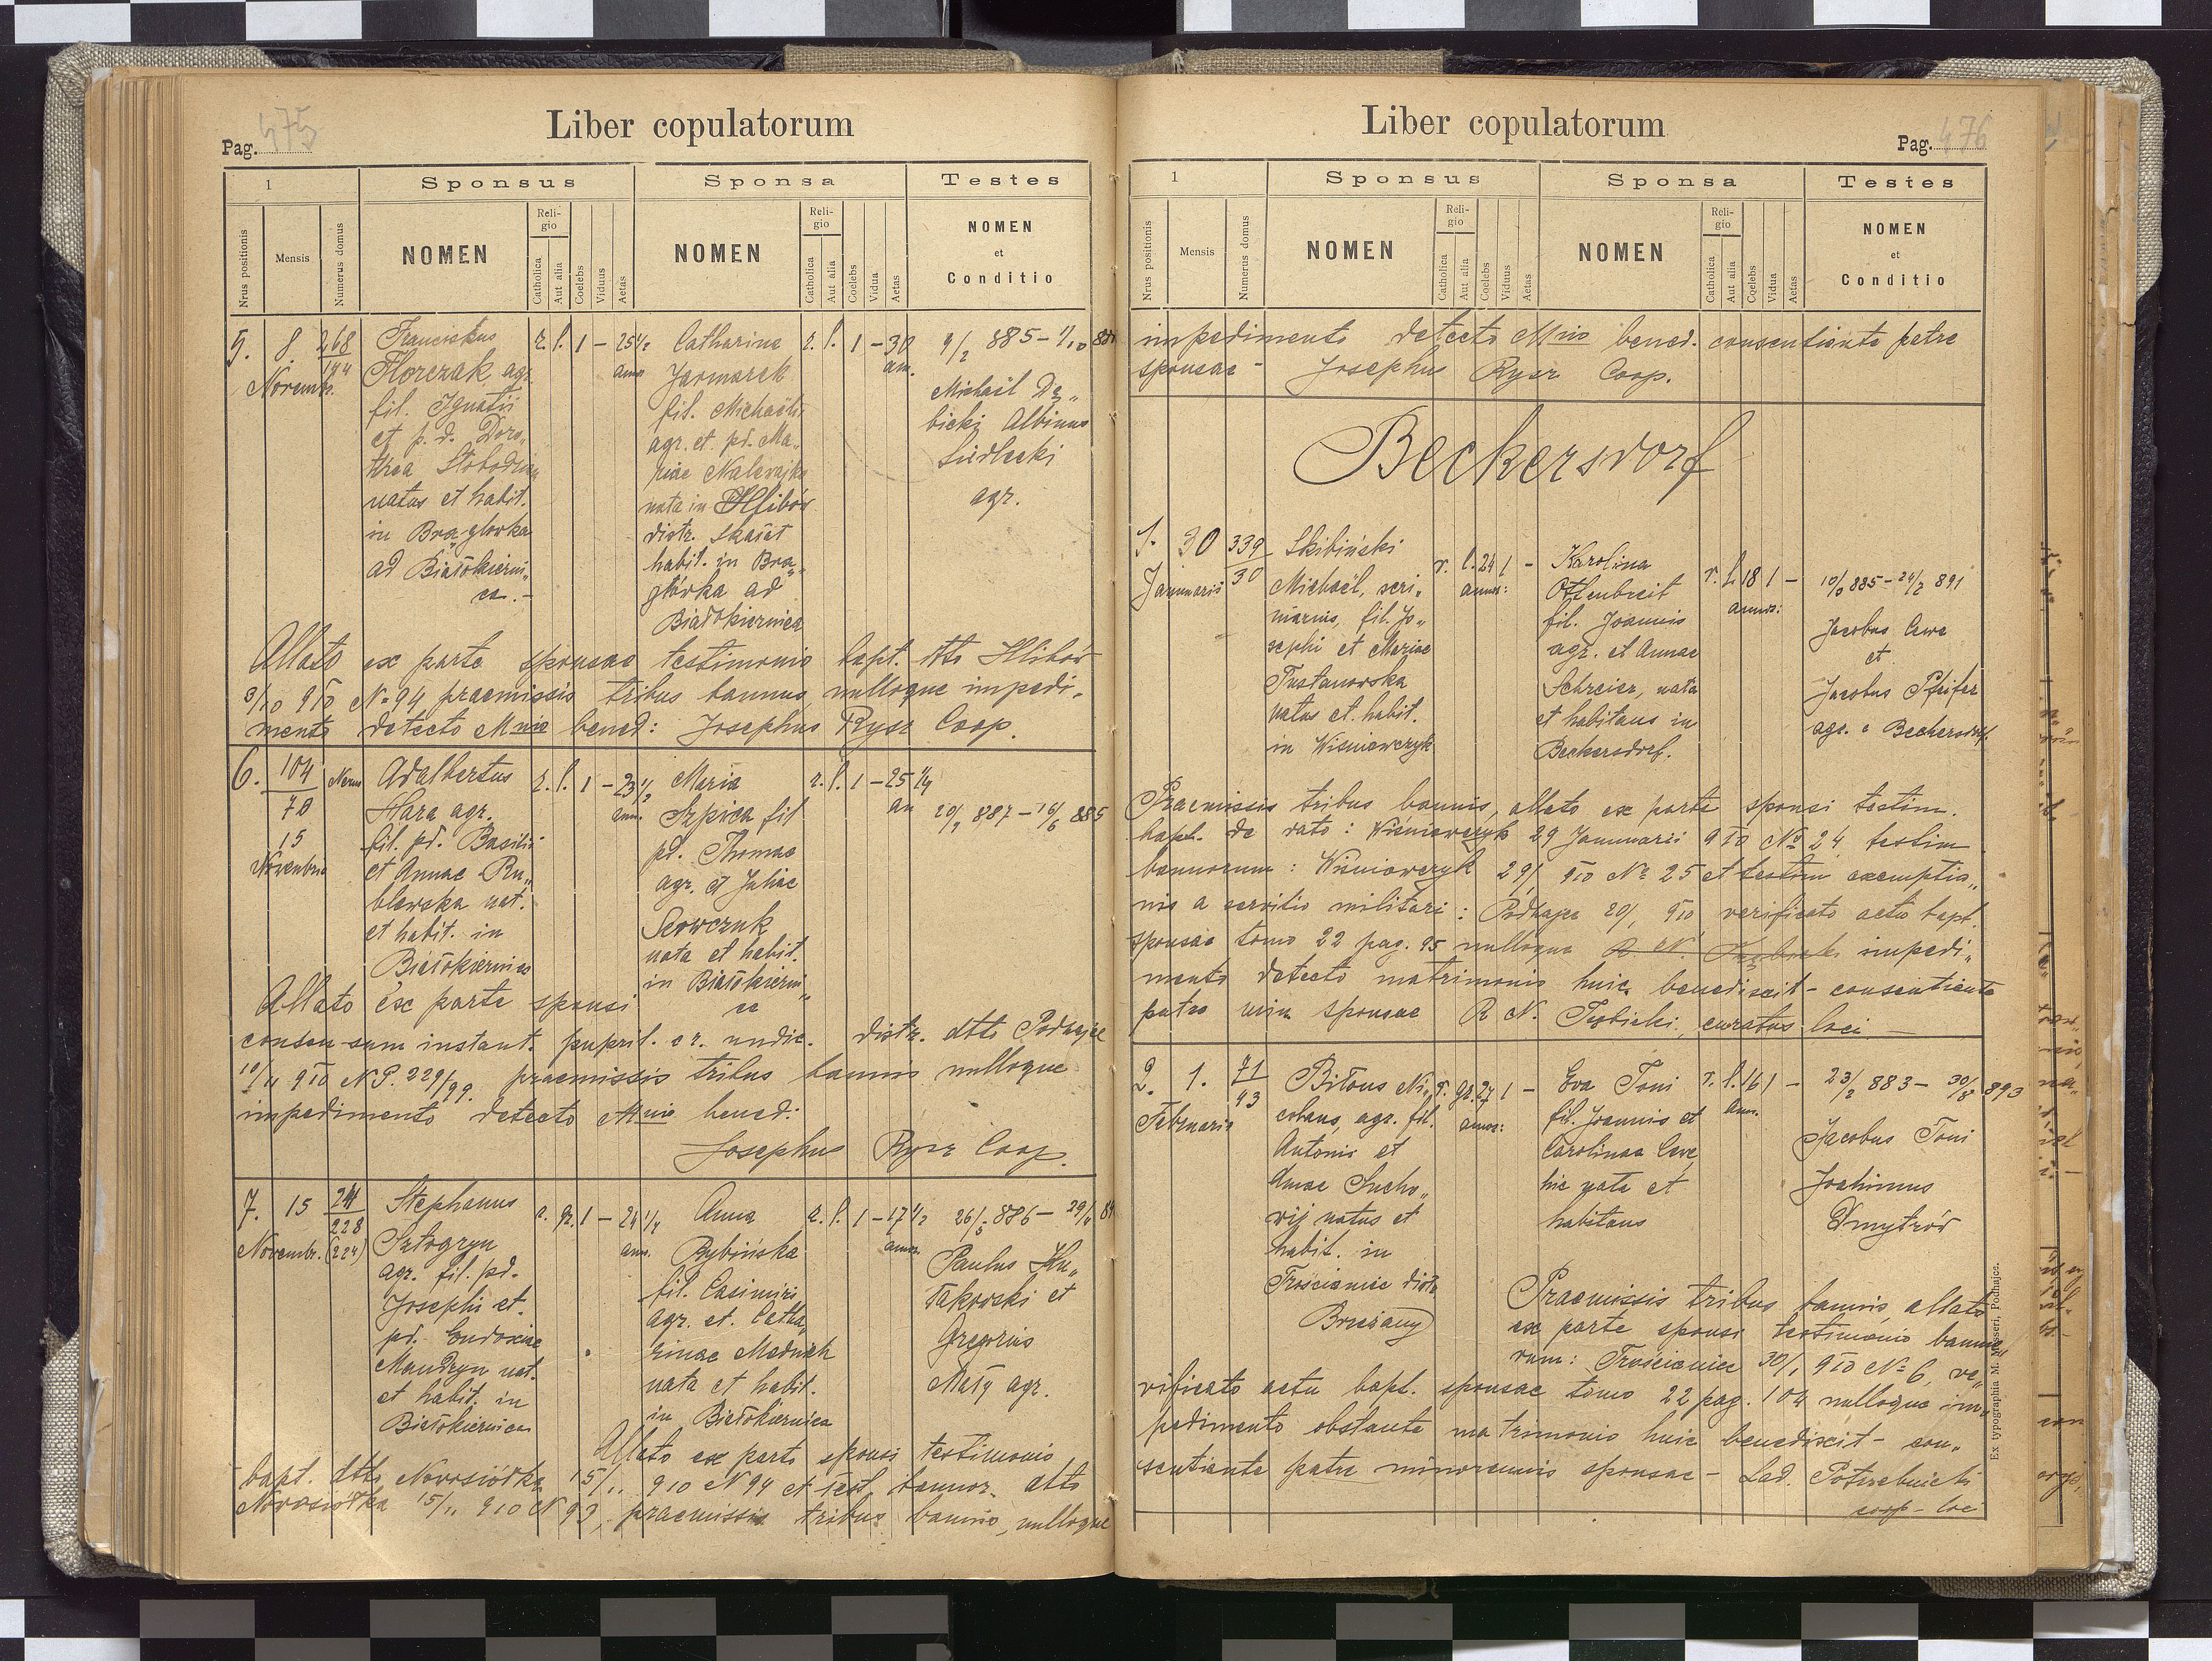 Pag. 475
Liber copulatorum
1
Sponsus
Sponsa
Testes
Nrus positionis
Mensis
Numerus domus
NOMEN
Religio
Catholica
Aut alia
Coelebs
Viduus
Aetas
NOMEN
Religio
Catholica
Aut alia
Coelebs
Vidua
Aetas
NOMEN
et
Conditio
5. 8. 268
194
Novemb.
Franciskus
Florczak agr.
fil. Ignatii
et p. d. Doro„
thea
natus et habit.
in Brą„glówka
ad Białokierni„
ca.-
r. l. 1 - 25 1/2
ann
Catharina
Jarmarek
fil. Michaëlis
agr. et pd. Ma„
riae Nalewajko
nata in Hlibów
distr. Skałat
habit. in Brą„
glówka ad
Białokiernica
r. l. 1 - 30
an.
9/2 885 - 1/10 880
Michaël Dę„
bicki Albinus
Siedlecki
agr.
Allato ex parte sponsae testimonio bapt. dtto Hlibów
3/10 910 No 94 praemissis tribus bannis nulloque impedi„
mento detecto Mnio bened: Josephus Rysz Coop.
6. 104
70
15
Novembris
Adalbertus
Hara agr.
fil. pd. Basilii
et Annae Ru„
blewska nat.
et habit. in
Białokiernica
r. l. 1 - 23 1/2
ann.
Maria
fil
pd. Thomae
agr. et Juliae
Sewczuk
nata et habit.
in Białokierni„
ca
r. l. 1 - 25 1/4
an
20/4 887 - 16/6 885
Allato ex parte sponsi
consensum instant. pupil. distr. dtto Podhajce
10/11 910 N P. 229/99. praemissis tribus bannis nulloque
impedimento detecto Mnio bened:
Josephus Rysz Coop.
7. 15 241
228
Novembr. (224)
Stephanus
Sztogryn
agr. fil. pd.
Josephi et
pd. Eudoxiae
Mandzyn nat.
et habit. in
Białokiernica
r. gr. 1 - 24 1/4
ann.
Anna
Rybińska
fil. Casimiri
agr. et. Catha„
rinae Maduch
nata et habit.
in Białokiernica
r. l. 1 - 17 1/2
annor.
26/3 886 - 29/4
Paulus Hu„
takowski et
Gregorius
Mały agr.
Allato ex parte sponsi testimonio
bapt. dtto Nowosiółka 15/11 910 N 94 et test. bannor. dtto
Nowosiółka 15/11 910 N 93, praemissis tribus bannis, nulloque
Liber copulatorum
Pag. 476
1
Sponsus
Sponsa
Testes
Nrus positionis
Mensis
Numerus domus
NOMEN
Religio
Catholica
Aut alia
Coelebs
Viduus
Aetas
NOMEN
Religio
Catholica
Aut alia
Coelebs
Vidua
Aetas
NOMEN
et
Conditio
impedimento detecto Mnio bened. consentiente patre
sponsae - Josephus Rysz Coop.
Beckersdorf
1. 30 339
30
Januarii
Skibiński
Michaël, scri„
niarius, fil. Jo„
sephi et Mariae
Tustanowska
natus et. habit.
in Wiśniowczyk
r. l. 24 1 -
annor:
Karolina
Ottenbreit
fil. Joannis
agr. et Annae
Schreier, nata
et habitans in
Beckersdorf.
r. l. 18 1 -
annor:
10/8 885 - 24/2 891
Jacobus Lewe
et
Jacobus Pfeifer
agr. e Beckersdorf.
Praemissis tribus bannis, allato ex parte sponsi testim.
bapt. de dato: Wiśniowczyk 29 Januarii 910 No 24 testim
bannorum: Wiśniowczyk 29/1 910 No 25 et testim exemptio„
nis a servitio militari: Podhajce 20/1 910 verificato actu bapt.
sponsae tomo 22 pag. 95 nulloque impedi„
mento detecto matrimonio huic benedixit - consentiente
patre sponsae R N. curatus loci
2. 1. 71
43
Februarii
Bitous Ni„
colaus, agr. fil.
Antonii et
Annae Sucho„
wij natus et
habit. in
Trościaniec distr
Brzeżany
r. gr. 27 1 -
annor:
Eva Toni
fil. Joannis et
Carolinae Lewe
hic nata et
habitans
r. l. 16 1 -
ann.
23/2 883 - 30/8 893
Jacobus Toni
Joachimus
Dmytrów
Praemissis tribus bannis, allato
ex parte sponsi testimonio banno„
rum: Trościaniec 30/1 910 No 6, ve„
rificato actu bapt. sponsae tomo 22 pag. 104 nulloque im„
pedimento obstante matrimonio huic benedixit - con„
sentiente patre minorennis sponsae - Lad. Potrzebnicki
coop - loci
Ex typographia M. Messeri, Podhajce.